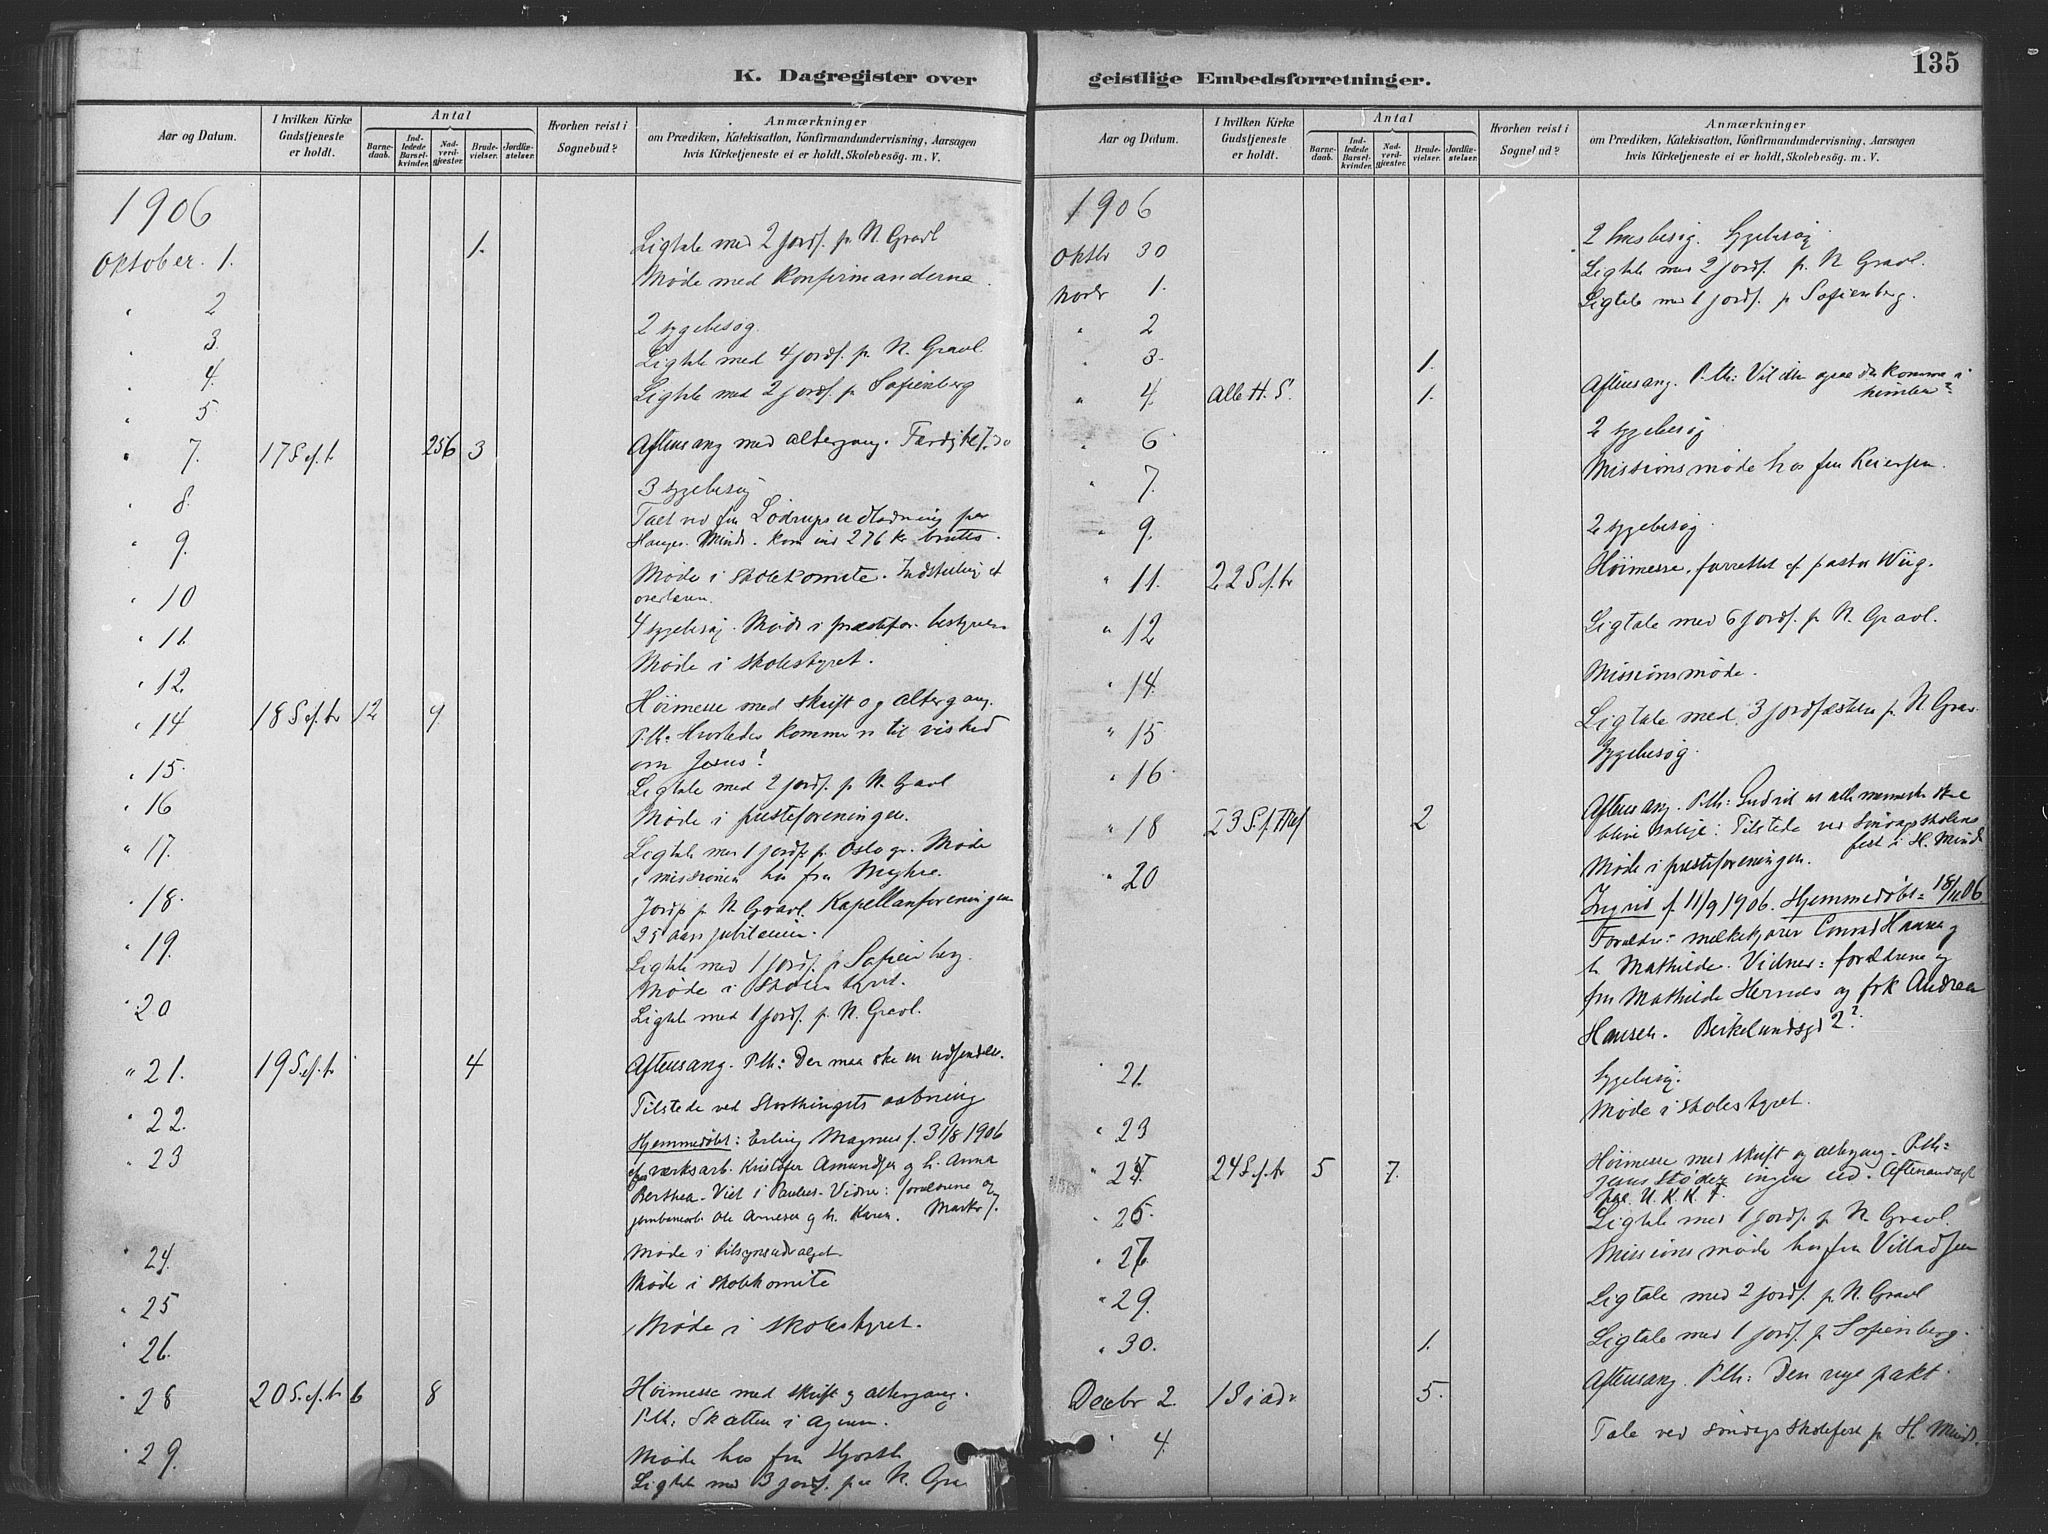 K. Dagregister over
Aar og Datum.
I hvilken Kirke Gudstjeneste er holdt.
Antal
Barne-daab.
Ind-ledede Barsel-kvinder.
Nad-verd-gjester.
Brude-vielser.
Jordfæ-stelser.
Hvorhen reist i Sognebud?
Anmærkninger
om Prædiken, Katekisation, Konfirmandundervisning, Aarsagen
hvis Kirketjeneste ei er holdt, Skolebesög. m. V.
1906
Oktober. 1. 1. Ligtale med 2 jordf. p. N. Gravl
Møde med Konfirmanderne.
" 2 2 sygebesøg.
" 3. Ligtale med 4 jordf. p. N. Gravl.
" 4. Ligtale med 2 jordf. p Sofienberg
" 5
" 7. 17 S. ef. tr 256 3 Aftensang med altergang. Færdig kl 7.30
" 8. 3 sygebesøg
" 9. Talt ved fru Lodrups udlodning paa
Hauges Minde. Kom ind 276 kr brutto.
" 10 Møde i skolekomite. Indstilling af
overlærer.
" 11. 4 sygebesøg. Møde i præstefor. bestyrelse
" 12. Møde i skolestyret.
" 14 18 S. ef. tr 12 9 Høimesse med skrift og altergang.
P.th: Hvorledes kommer vi til vished
om Jesus?
" 15. Ligtale med 2 jordf. p N. Gravl
" 16 Møde i presteforeningen.
" 17. Ligtale med 1 jordf. p. Oslo gr. Møde
i missionen hos fru Myhre.
" 18. Jordf. p N. Gravl. Kapellanforeningens
25 aars jubilæum.
" 19. Ligtale med 1 jordf. p Sofienberg.
Møde i Skolestyret.
" 20 Ligtale med 1 jordf. p N. Gravl.
" 21. 19 S. ef. tr 4 Aftensang. P.th: Der maa ske en udsendelse.
" 22. Tilstede ved Storthingets aabning
" 23 Hjemmedøbt: Erling Magnus f. 31/8 1906
af værksarb. Kristofer Amundsen og h. Anna
Berthea. Viet i Paulus. Vidner: forældrene og
jernbanearb Ole Arnesen og h. Karen.
" 24. Møde i tilsynsudvalget.
" 25 Møde i skolekomite
" 26. Møde i skolestyret.
" 28 20 S. ef. tr 6 8 Høimesse med skrift og altergang.
P.th: Skatten i ageren.
" 29. Møde hos fru Hjorth
Ligtale med 3 jordf. paa N. Gra
135
geistlige Embedsforretninger.
Aar og Datum.
I hvilken Kirke Gudstjeneste er holdt.
Antal
Barne-daab.
Ind-ledede Barsel-kvinder.
Nad-verd-gjester.
Brude-vielser.
Jordfæ-stelser.
Hvorhen reist i Sognebud?
Anmærkninger
om Prædiken, Katekisation, Konfirmandundervisning, Aarsagen
hvis Kirketjeneste ei er holdt, Skolebesög. m. V.
1906
Oktbr 30 2 husbesøg. Sygebesøg.
Novbr 1. Ligtale med 2 jordf. p. N. Gravl.
" 2 Ligtale med 1 jordf. p Sofienberg.
" 3. 1.
" 4. Alle H. S. 1. Aftensang. P.th: Vil du ogsaa komme i
himlen?
" 6 2 sygebesøg
" 7. Missionsmøde hos fru Reiersen.
" 9. 2 sygebesøg.
" 11. 22 S. ef. tr Høimesse, forrettet af pastor Wiig.
" 12 Ligtale med 6 jordf. p N. Gravl.
" 14. Missionsmøde.
" 15 Ligtale med 3 jordfæstelser p. N. Grav
" 16. Sygebesøg.
" 18 23 S. f. Tref 2 Aftensang. P.th: Gud vil at alle mennesker skal
blive salige: Tilstede ved søndagsskolens
fest i H. Minde
" 20 Møde i presteforeningen.
Ingrid f. 11/9 1906. Hjemmedøbt 18/11 06
Forældre: melkekjører Conrad Hansen og
h Mathilde. Vidner: forældrene og
fru Mathilde Hernes og frk Andrea
Hansen. Birkelundsgd 2?
" 21. Sygebesøg.
" 23 Møde i skolestyret.
" 25. 24 S. ef. tr 5 7. Høimesse med skrift og altergang. P.th:
Jesus støder ingen ud. Aftenandagt
paa U. K. K. F.
" 26. Ligtale med 1 jordf. p N. Gravl.
" 27. Missionsmøde hos fru Villadsen
" 29. Ligtale med 2 jordf. p. N. Gravl
" 30. 1. Ligtale med 1 jordf. p Sofienberg.
Decbr 2. 1 S i adv 5. Aftensang. P.th: Den nye pakt.
" 4. Tale ved søndagsskolefest p H. Minde.